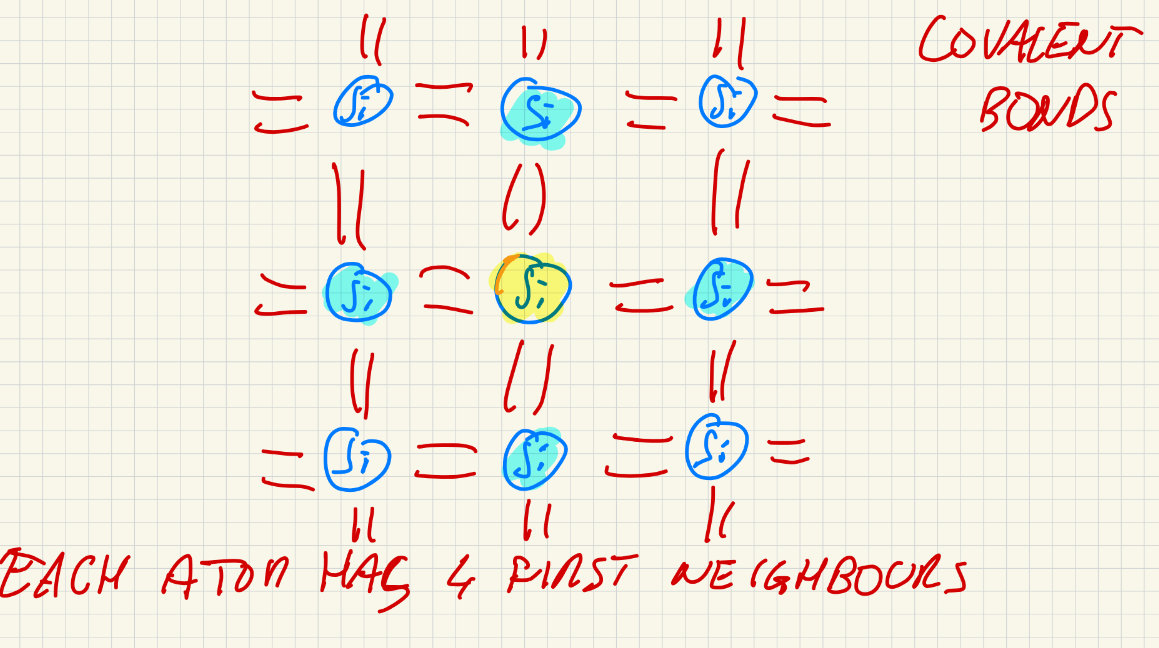 COVALENT
BONDS
Si Si Si
Si Si Si
Si Si Si
EACH ATOM HAS 4 FIRST NEIGHBOURS